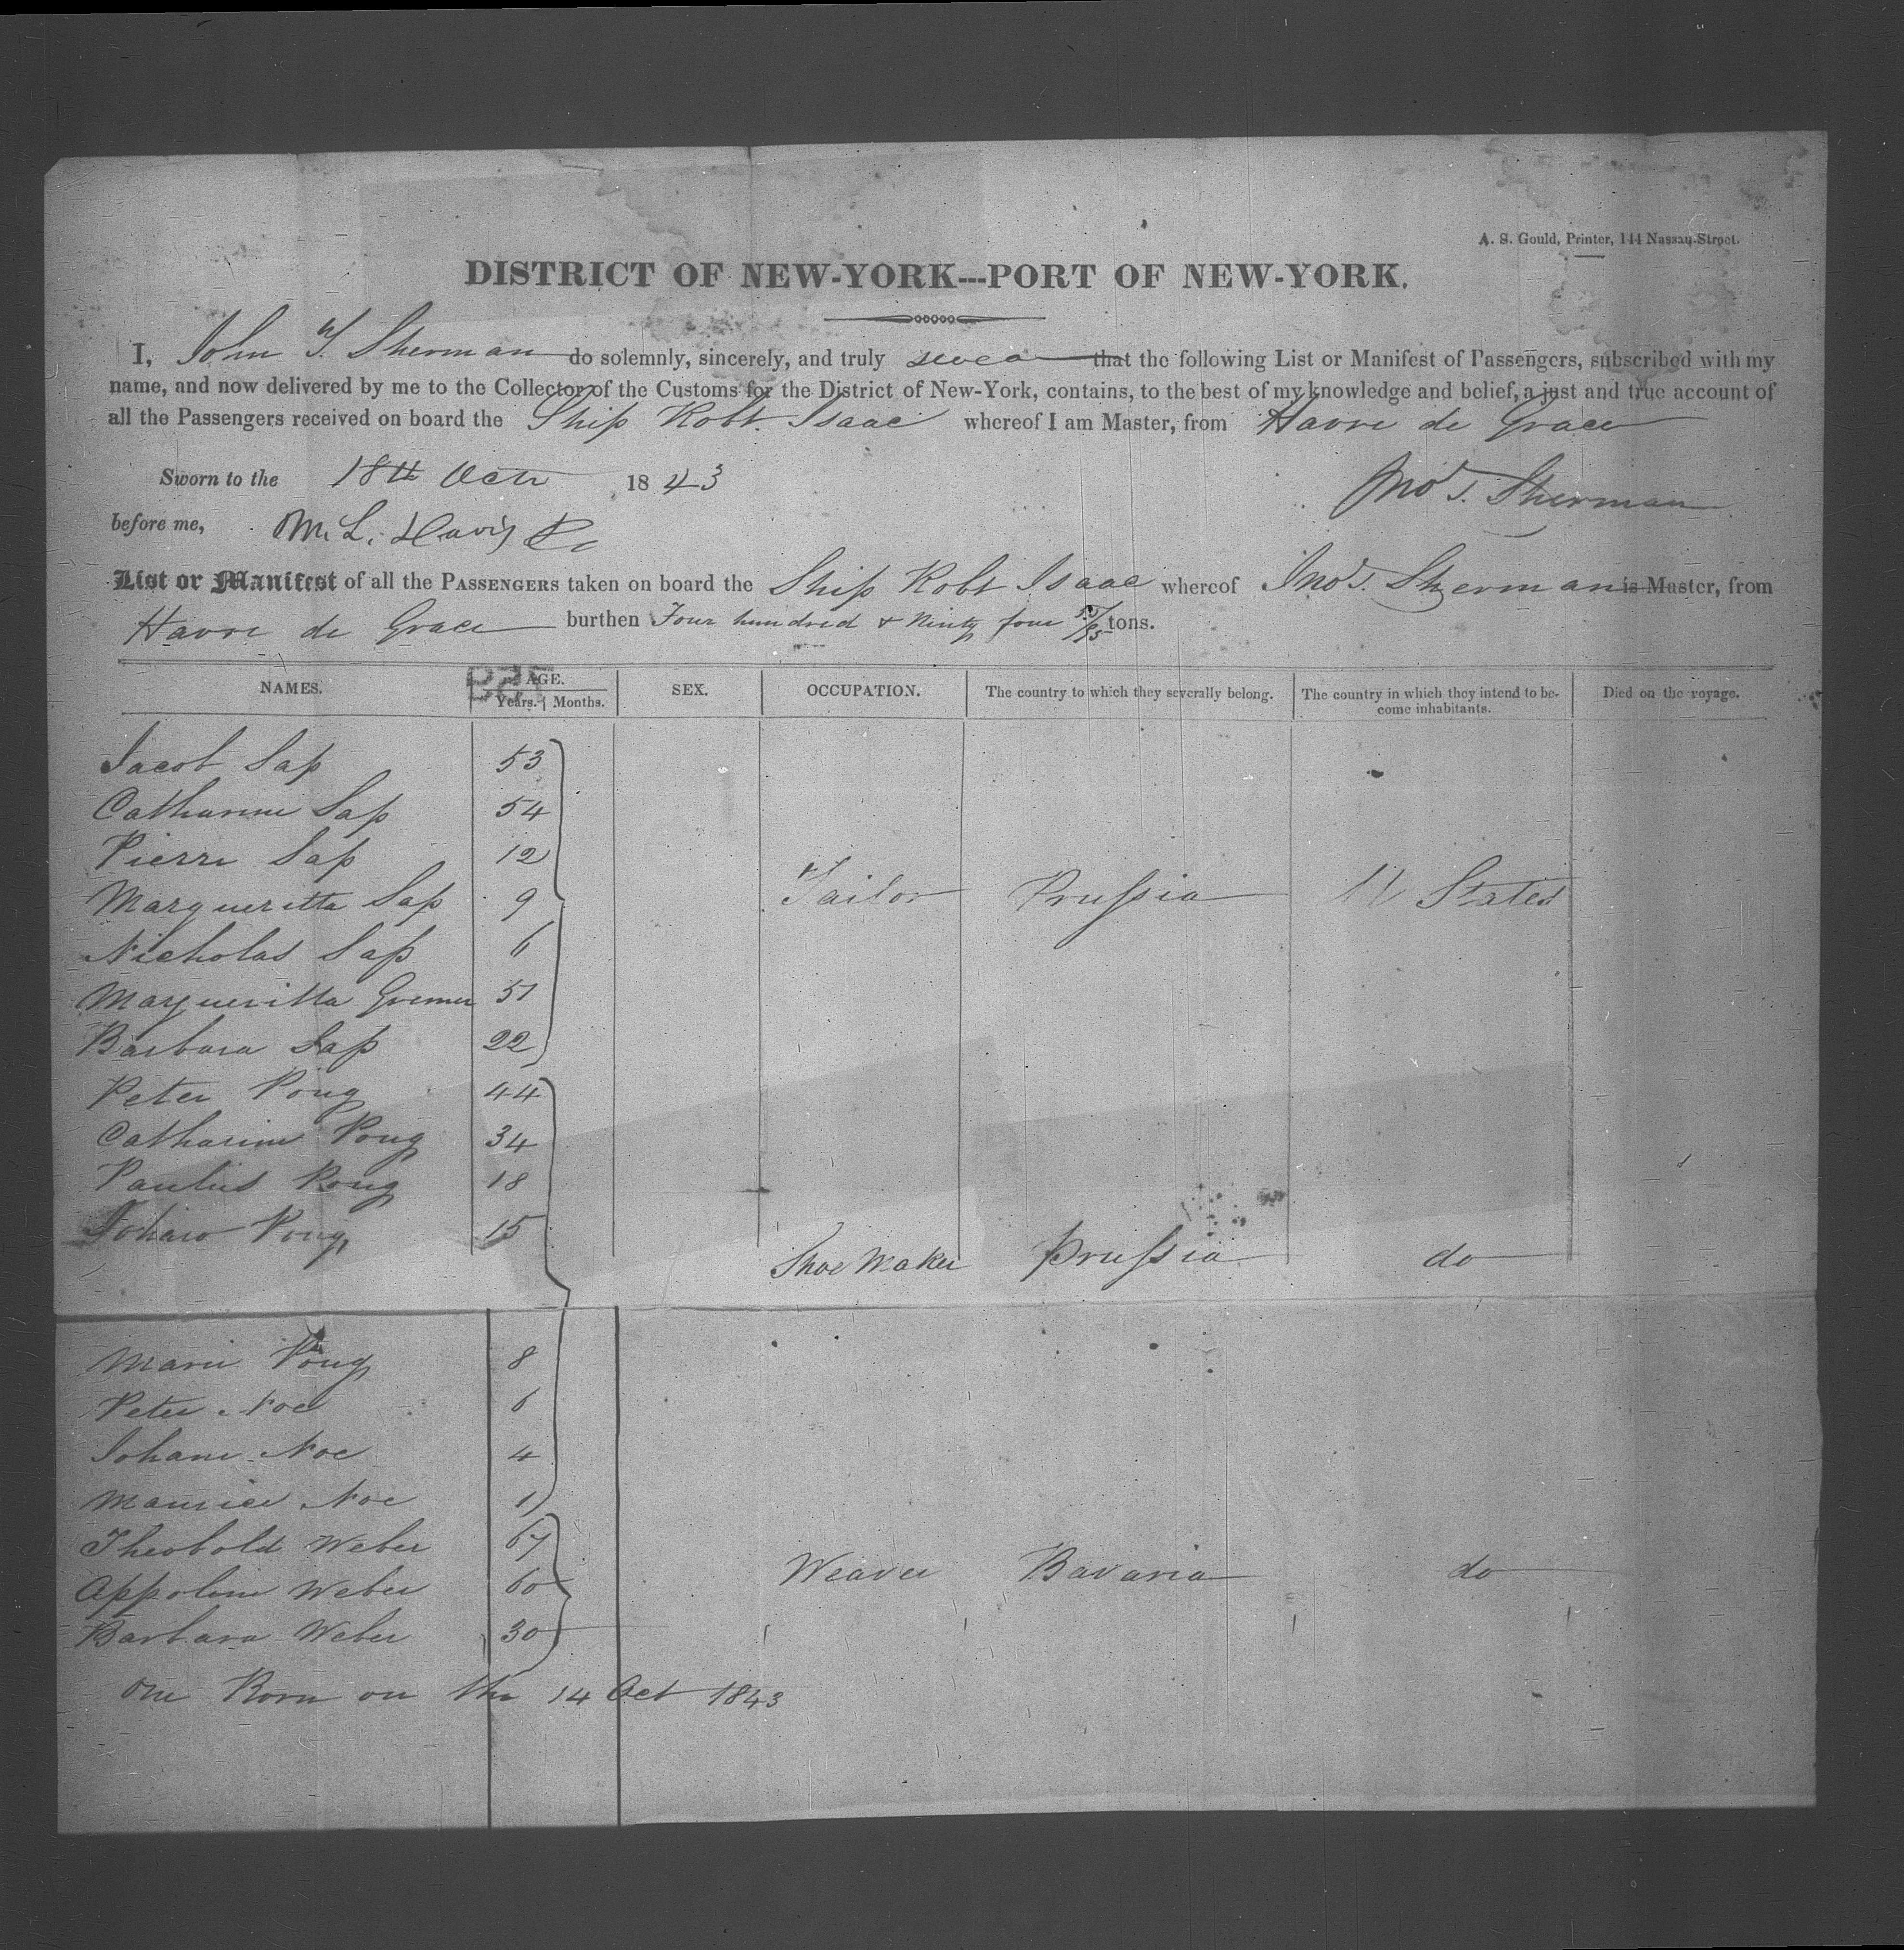 A. S. Gould, Printer, 144 Nassau-Street.
DISTRICT OF NEW-YORK---PORT OF NEW-YORK.
I, John T. Sherman do solemnly, sincerely, and truly swear that the following List or Manifest of Passengers, subscribed with my
name, and now delivered by me to the Collector of the Customs for the District of New-York, contains, to the best of my knowledge and belief, a just and true account of
all the Passengers received on board the Ship Robt. Isaac whereof I am Master, from Havre de Grace
Sworn to the 18th Octr 1843 Jno T. Sherman
before me, M. L. Davis
List or Manifest of all the PASSENGERS taken on board the Ship Robt Isaac whereof Jno T. Sherman is Master, from
Havre de Grace burthen Four hundred & Ninety four /95 tons.
NAMES. AGE. SEX. OCCUPATION. The country to which they severally belong. The country in which they intend to be- Died on the voyage.
Years. Months. come inhabitants.
Jacob Sap 53
Catharine Sap 54
Pierre Sap 12
Margueritta Sap 9 Tailor Prussia U States
Nicholas Sap 6
Margueritta Gremer 51
Barbara Sap 22
Peter Poug 44
Catharine Poug 34
Paulus Poug 18
Johann Poug 15
Shoe Maker Prussia do
Marie Poug 8
Peter Noe 6
Johann Noe 4
Maurice Noe 1
Theobold Weber 67
Appoline Weber 60 Weaver Bavaria do
Barbara Weber 30
One Born on the 14 Oct 1843